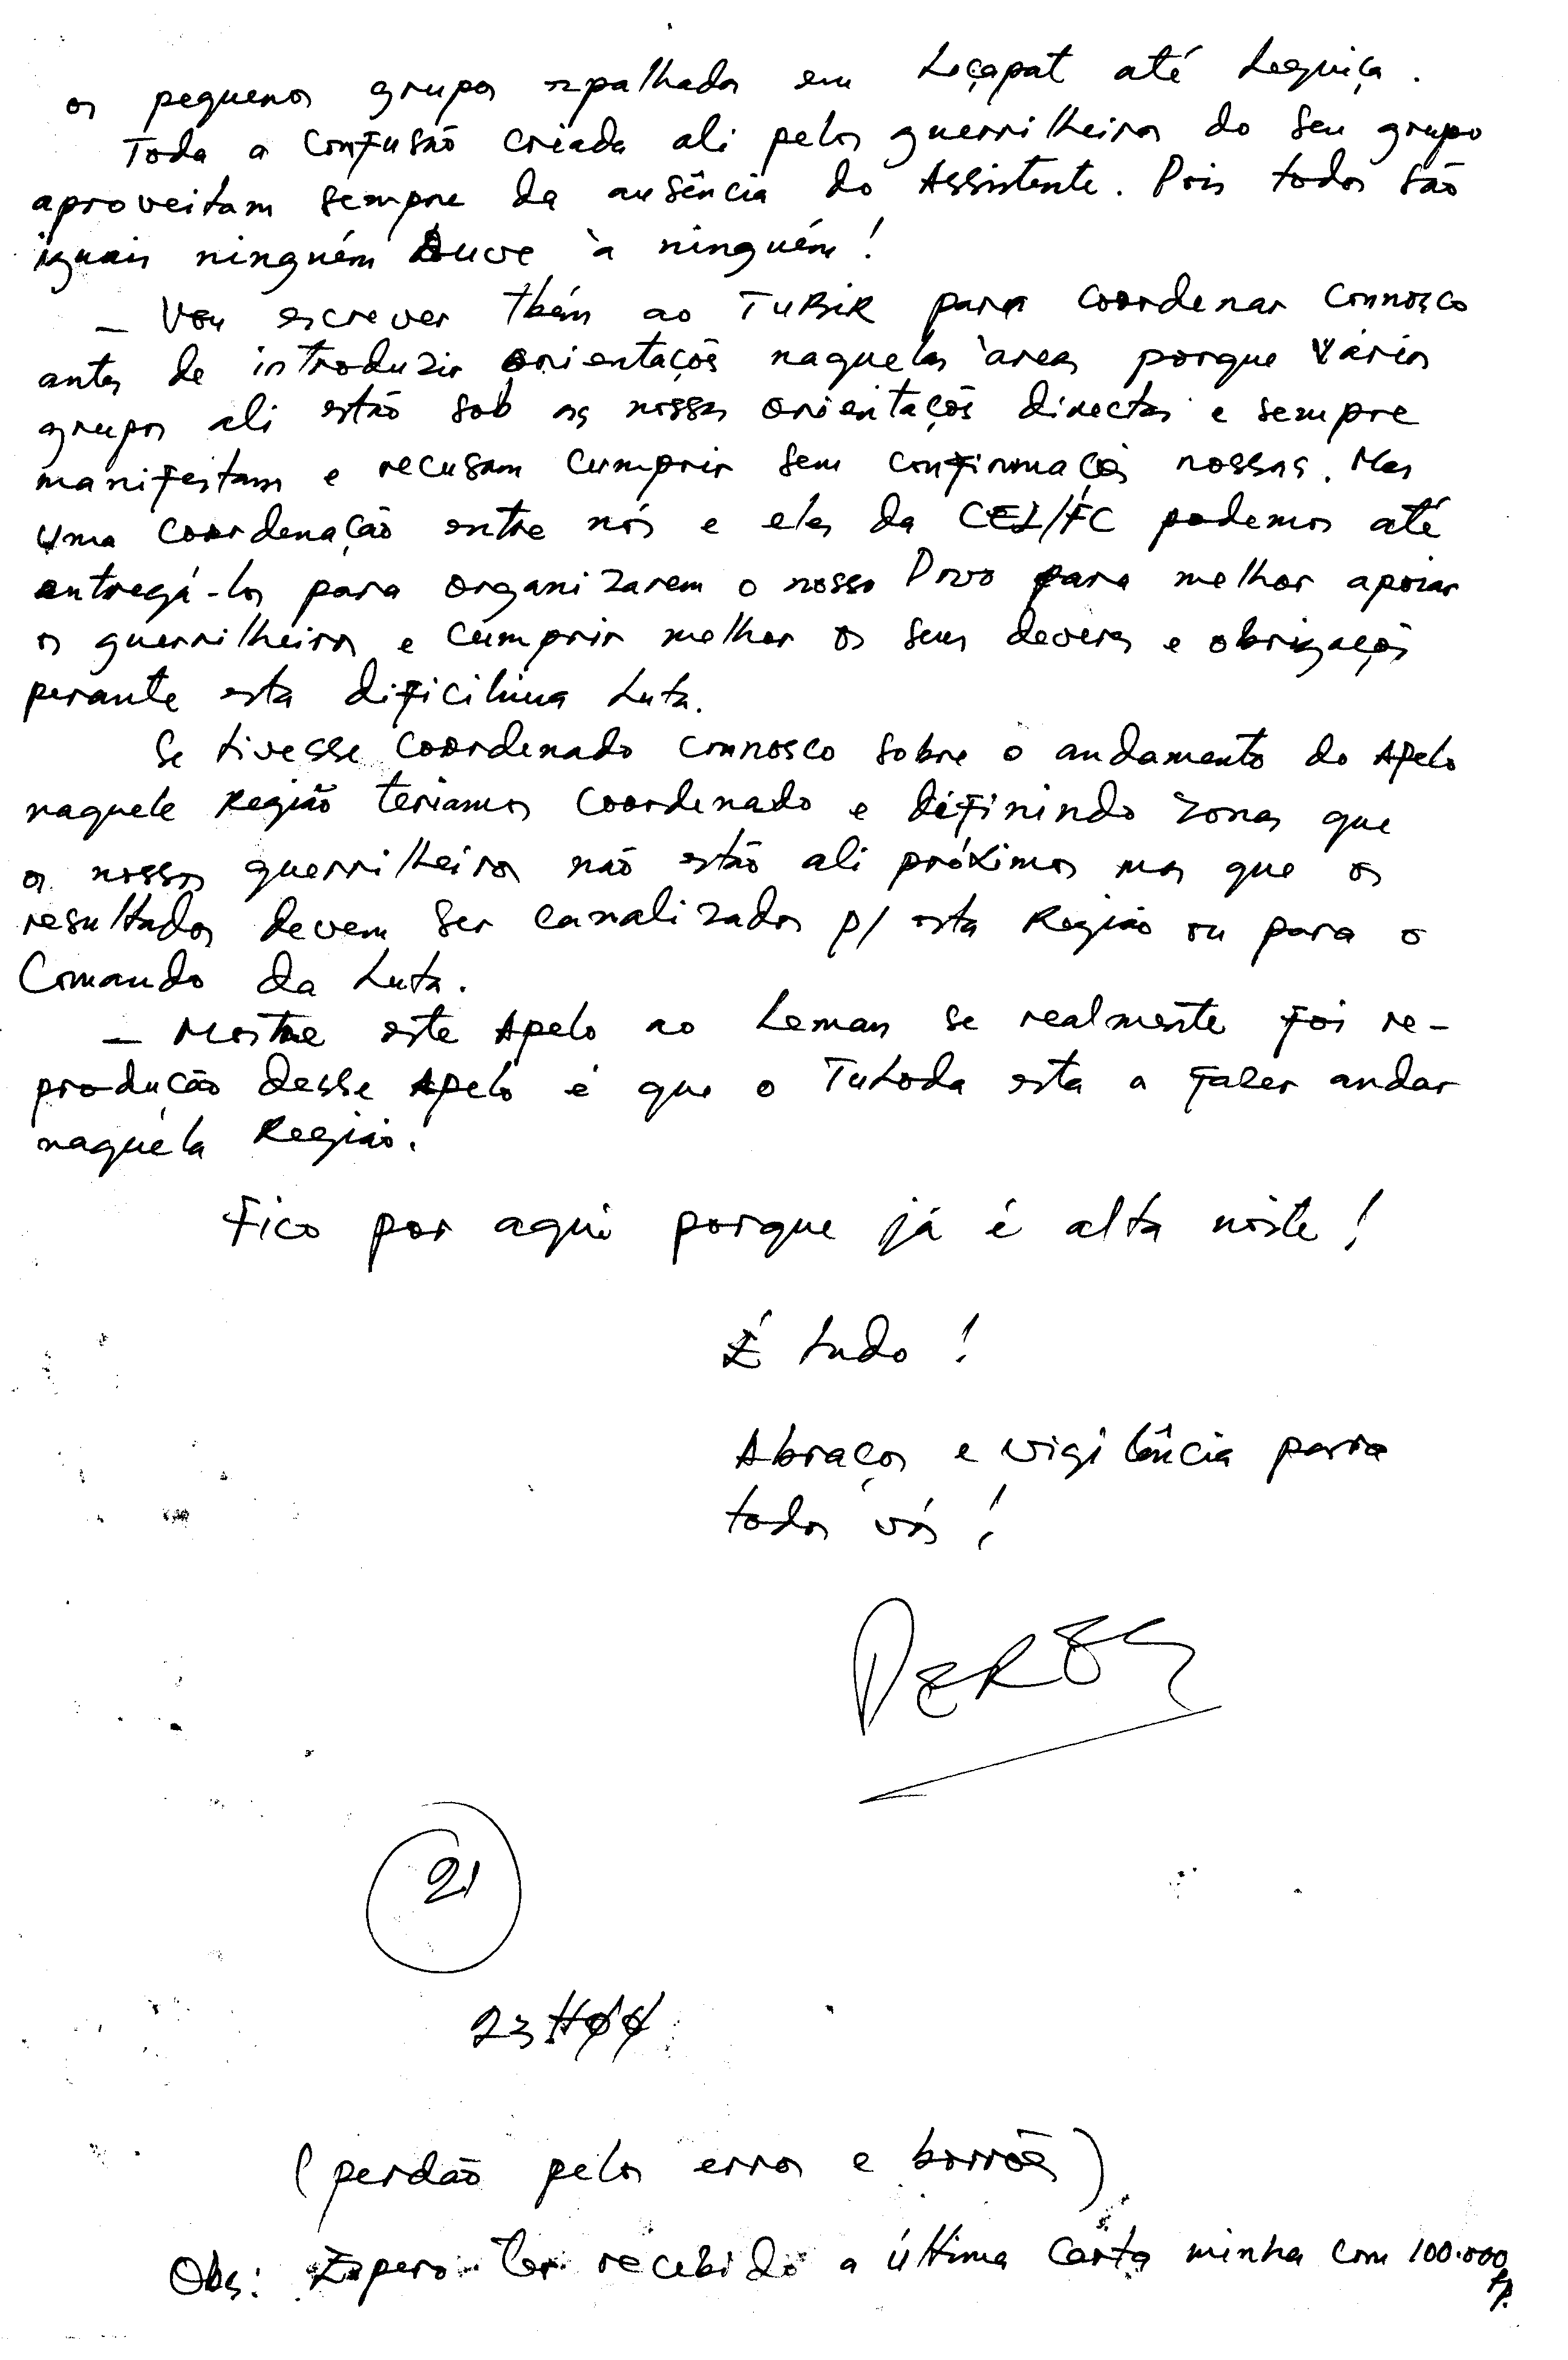 os pequenos grupos espalhados em Leçapat até Lequiça.
Toda a confusão criada ali pelos guerrilheiros do seu grupo
aproveitam sempre da ausência do Assistente. Pois todos são
iguais ninguém Ouve à ninguém!
– Vou escrever tbém ao TUBIR para coordenar connosco
antes de introduzir orientaçõs naquelas àreas porque vários
grupos ali estão sob as nossas orientaçõs directas e sempre
manifestam e recusam cumprir sem confirmaçõs nossas. Mas
uma coordenação entre nós e eles da CEL/FC podemos até
entregá-los para organizarem o nosso Povo para melhor apoiar
os guerrilheiros e cumprir melhor os seus deveres e obrigaçõs
perante esta dificilima Luta.
Se tivesse coordenado connosco sobre o andamento do Apelo
naquele Região teriamos coordenado e difinindo zonas que
os nossos guerrilheiros não estão ali próximos mas que os
resultados devem ser canalizados p/ esta Região ou para o
Comando da Luta.
– Mostre este Apelo ao Leman se realmente foi re-
produção desse Apelo é que o TuLoda esta a fazer andar
naquela Região.
Fico por aqui porque já é alta noite!
É tudo!
Abraços e vigilância para
todos vós!
PERES
21
23H00
(perdão pelos erros e borrões)
Obs: Espero ter recebido a última Carta minha com 100.000
rp.